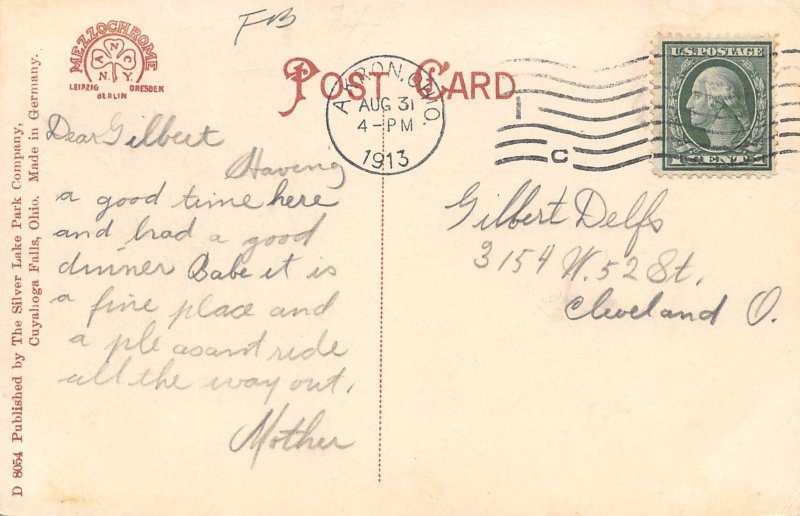 FB
MEZZOCHROME
A N C
N.Y.
LEIPZIG DRESDEN
BERLIN
POST CARD
AKRON, OHIO.
AUG 31
4-PM
1913
C
U.S. POSTAGE
1 CENT 1
Dear Gilbert
Having
a good time here
and had a good
dinner Babe it is
a fine place and
a pleasant ride
all the way out.
Mother
Gilbert Delfs
3154 W. 52 St.
Cleveland O.
D 8054 Published by The Silver Lake Park Company,
Cuyahoga Falls, Ohio. Made in Germany.